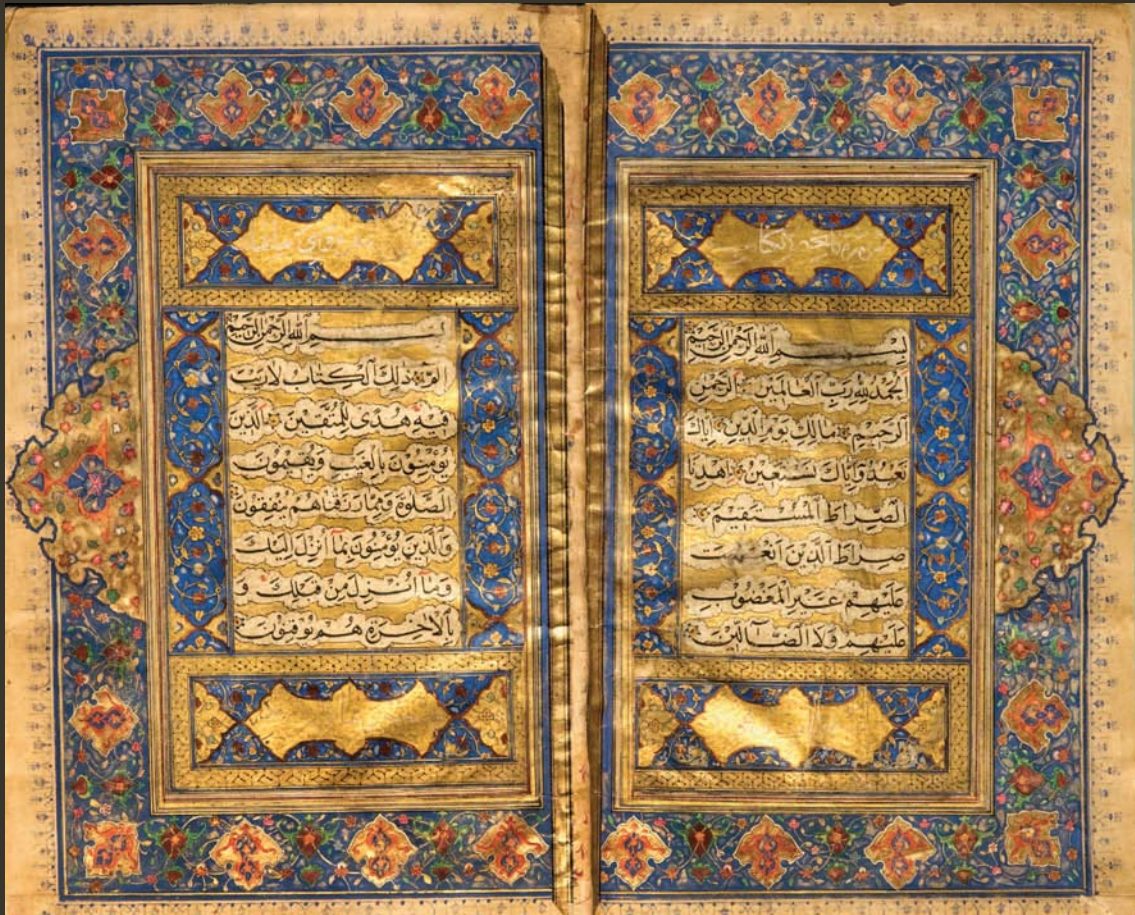 بسم الله الرحمن الرحيم
الحمد لله رب العالمين الرحمن
الرحيم مالك يوم الدين اياك
نعبد واياك نستعين اهدنا
الصراط المستقيم
صراط الذين انعمت
عليهم غير المغضوب
عليهم ولا الضالين
بسم الله الرحمن الرحيم
الم ذلك الكتاب لا ريب
فيه هدى للمتقين الذين
يؤمنون بالغيب ويقيمون
الصلوة ومما رزقناهم ينفقون
والذين يؤمنون بما انزل اليك
وما انزل من قبلك و
بالاخرة هم يوقنون